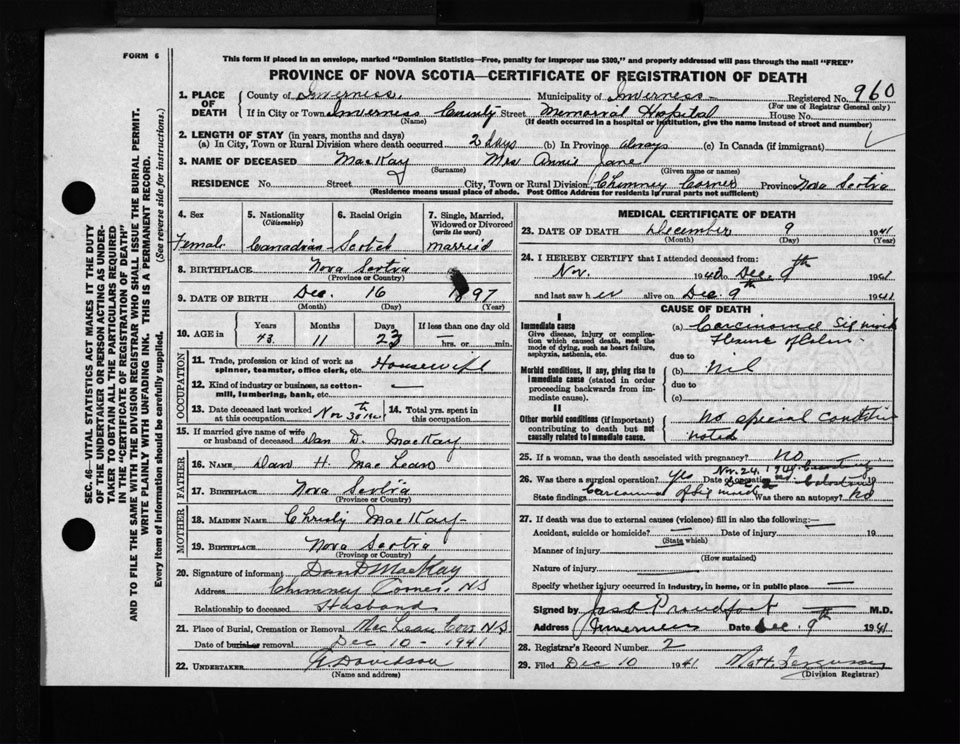 FORM 6
This form if placed in an envelope, marked "Dominion Statistics—Free, penalty for improper use $300," and properly addressed will pass through the mail "FREE"
PROVINCE OF NOVA SCOTIA—CERTIFICATE OF REGISTRATION OF DEATH
1. PLACE OF DEATH County of Inverness. Municipality of Inverness- Registered No. 960
(For use of Registrar General only)
If in City or Town Inverness County Street Memorial Hospital House No.
(Name) (If death occurred in a hospital or institution, give the name instead of street and number)
2. LENGTH OF STAY (in years, months and days)
(a) In City, Town or Rural Division where death occurred 2 days (b) In Province always (c) In Canada (if immigrant)
3. NAME OF DECEASED MacKay Mrs Annie Jane
(Surname) (Given name or names)
RESIDENCE No. Street City, Town or Rural Division Chimney Corner Province Nova Scotia
(Residence means usual place of abode. Post Office Address for residents in rural parts not sufficient)
4. Sex 5. Nationality (Citizenship) 6. Racial Origin 7. Single, Married, Widowed or Divorced (write the word)
Female Canadian Scotch married
8. BIRTHPLACE Nova Scotia
(Province or Country)
9. DATE OF BIRTH Dec. 16 1897
(Month) (Day) (Year)
10. AGE in Years Months Days If less than one day old
43. 11 23 hrs. or min.
OCCUPATION
11. Trade, profession or kind of work as spinner, teamster, office clerk, etc. Housewife
12. Kind of industry or business, as cotton-mill, lumbering, bank, etc. —
13. Date deceased last worked at this occupation Nov 14. Total yrs. spent in this occupation
15. If married give name of wife or husband of deceased Dan D. MacKay
FATHER
16. NAME Dan H. MacLean
17. BIRTHPLACE Nova Scotia
(Province or Country)
MOTHER
18. MAIDEN NAME Christy MacKay-
19. BIRTHPLACE Nova Scotia
(Province or Country)
20. Signature of informant Dan D MacKay
Address Chimney Corner. NS
Relationship to deceased Husband
21. Place of Burial, Cremation or Removal MacLean N.S.
Date of burial or removal Dec 10 - 1941
22. UNDERTAKER Davidson
(Name and address)
MEDICAL CERTIFICATE OF DEATH
23. DATE OF DEATH December 9 1941
(Month) (Day) (Year)
24. I HEREBY CERTIFY that I attended deceased from:
Nov. 1940 to Dec. 9th 1941
and last saw her alive on Dec 9th 1941
CAUSE OF DEATH
I
Immediate cause
Give disease, injury or complication which caused death, not the mode of dying, such as heart failure, asphyxia, asthenia, etc.
(a) Carcinoma Sigmoid
Flexure of Colon-
due to
Morbid conditions, if any, giving rise to immediate cause (stated in order proceeding backwards from immediate cause).
(b) nil
due to
(c)
II
Other morbid conditions (if important) contributing to death but not causally related to immediate cause.
No special condition
noted
25. If a woman, was the death associated with pregnancy? NO
26. Was there a surgical operation? yes Date of operation Nov. 24. 1941
State findings Carcinoma of Sigmoid Was there an autopsy? No
27. If death was due to external causes (violence) fill in also the following:—
Accident, suicide or homicide? — Date of injury 19
(State which)
Manner of injury
(How sustained)
Nature of injury
Specify whether injury occurred in industry, in home, or in public place —
Signed by Jas. Proudfoot M.D.
Address Inverness Date Dec. 9th 1941
28. Registrar's Record Number 2
29. Filed Dec 10 1941 Matt Ferguson
(Division Registrar)
SEC. 46—VITAL STATISTICS ACT MAKES IT THE DUTY
OF THE UNDERTAKER OR PERSON ACTING AS UNDER-
TAKER TO OBTAIN ALL THE PARTICULARS REQUIRED
IN THE "CERTIFICATE OF REGISTRATION OF DEATH"
AND TO FILE THE SAME WITH THE DIVISION REGISTRAR WHO SHALL ISSUE THE BURIAL PERMIT.
WRITE PLAINLY WITH UNFADING INK. THIS IS A PERMANENT RECORD.
Every item of information should be carefully supplied. (See reverse side for instructions.)